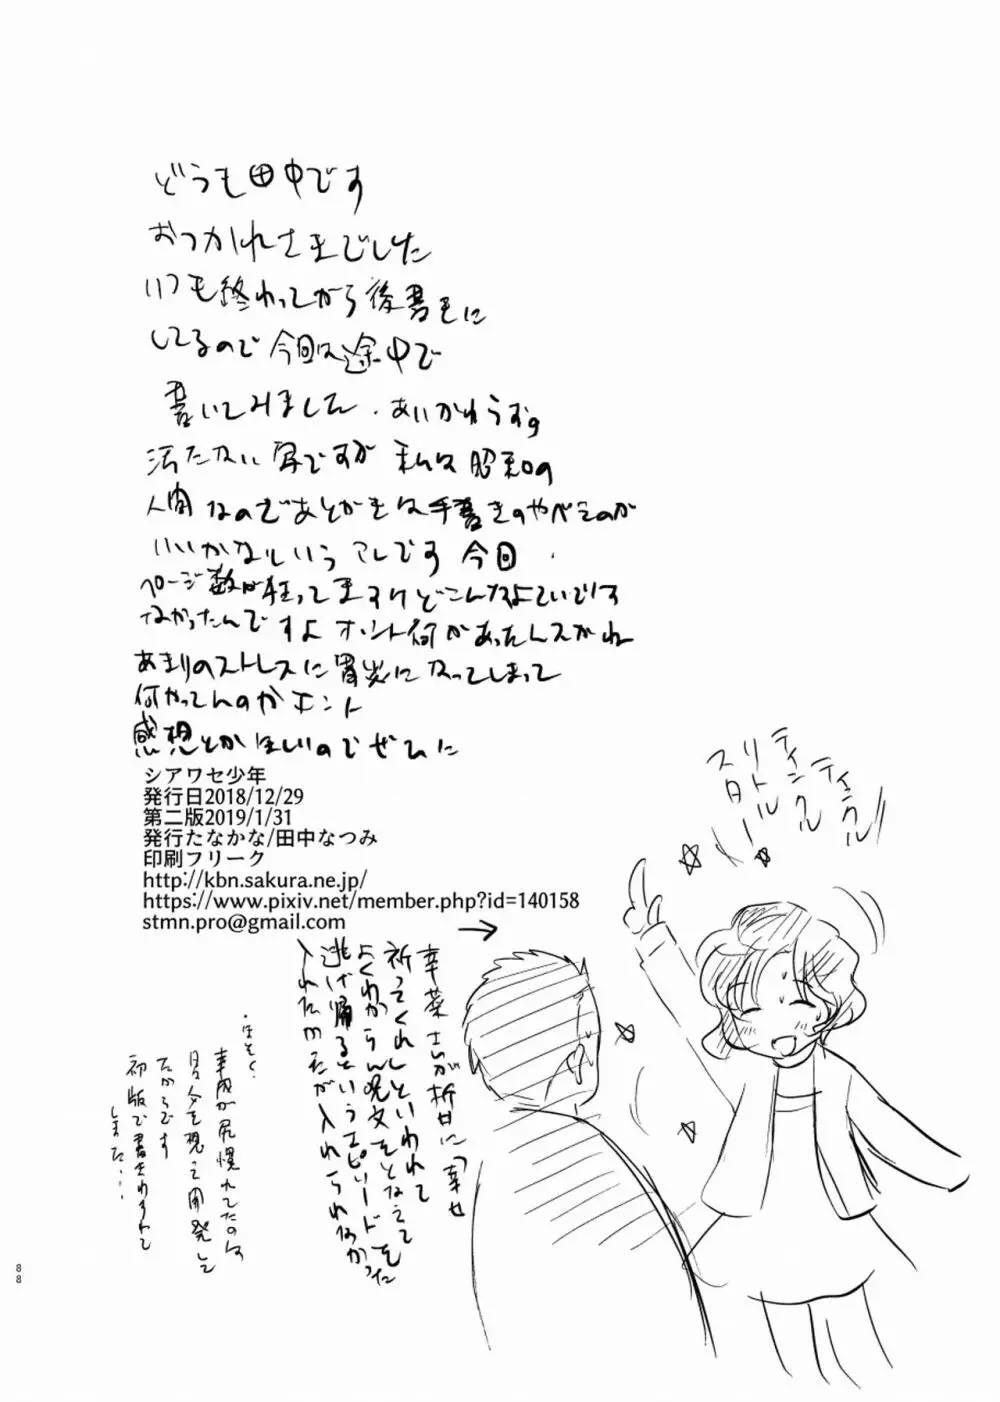 どうも田中です
おつかれさまでした
いつも終わってから後書きに
してるので今回は途中で
書いてみました.あいかわらずの
汚たない字ですが私は昭和の
人間なのであとがきは手書きのやべえのが
いいかなというアレです 今回
ページ数が狂ってますけどこんなよていでは
なかったんですよホント何があったんスかね
あまりのストレスに胃炎になってしまって
何やってんのかホント
感想とかほしいのでぜひに
シアワセ少年
発行日2018/12/29
第二版2019/1/31
発行たなかな/田中なつみ
印刷フリーク
http://kbn.sakura.ne.jp/
https://www.pixiv.net/member.php?id=140158
stmn.pro@gmail.com
→
ティンクル
ティンクル
リトル
スター
幸菜さいが折廿に「幸せ
祈ってくれ」といわれて
よくわからん呪文をとなえて
逃げ帰るというエピソードを
入れたかったが入れられなかった
・ほそく.
幸成が尻慣れてたのは
自分を想って開発して
たからです
初版で書きわすれて
しまた...
88